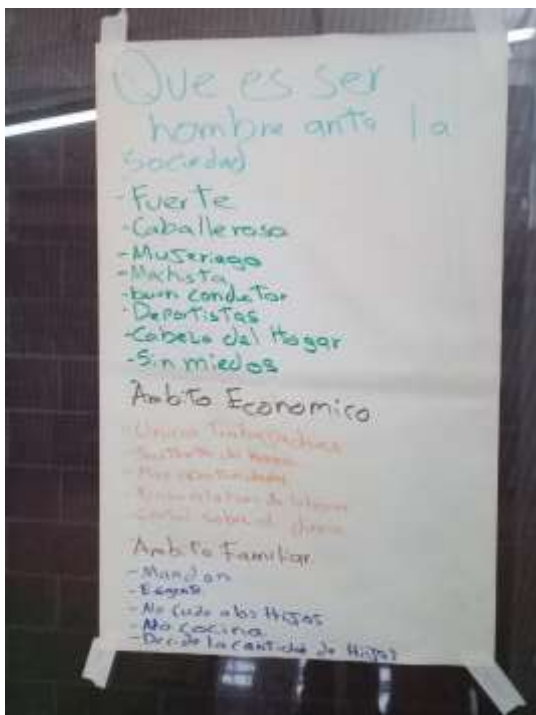 Que es ser
hombre ante la
sociedad
- Fuerte
- Caballeroso
- Mujeriego
- Machista
- buen conductor
- Deportistas
- Cabeza del Hogar
- Sin miedos
Ambito Economico
- Unicos Trabajadores
- Sustento de
- Mas oportunidades
- de
- Control sobre el dinero
Ambito Familiar
- Mandon
- Exigente
- No Cuida a los Hijos
- No cocina
- Decide la cantidad de Hijos